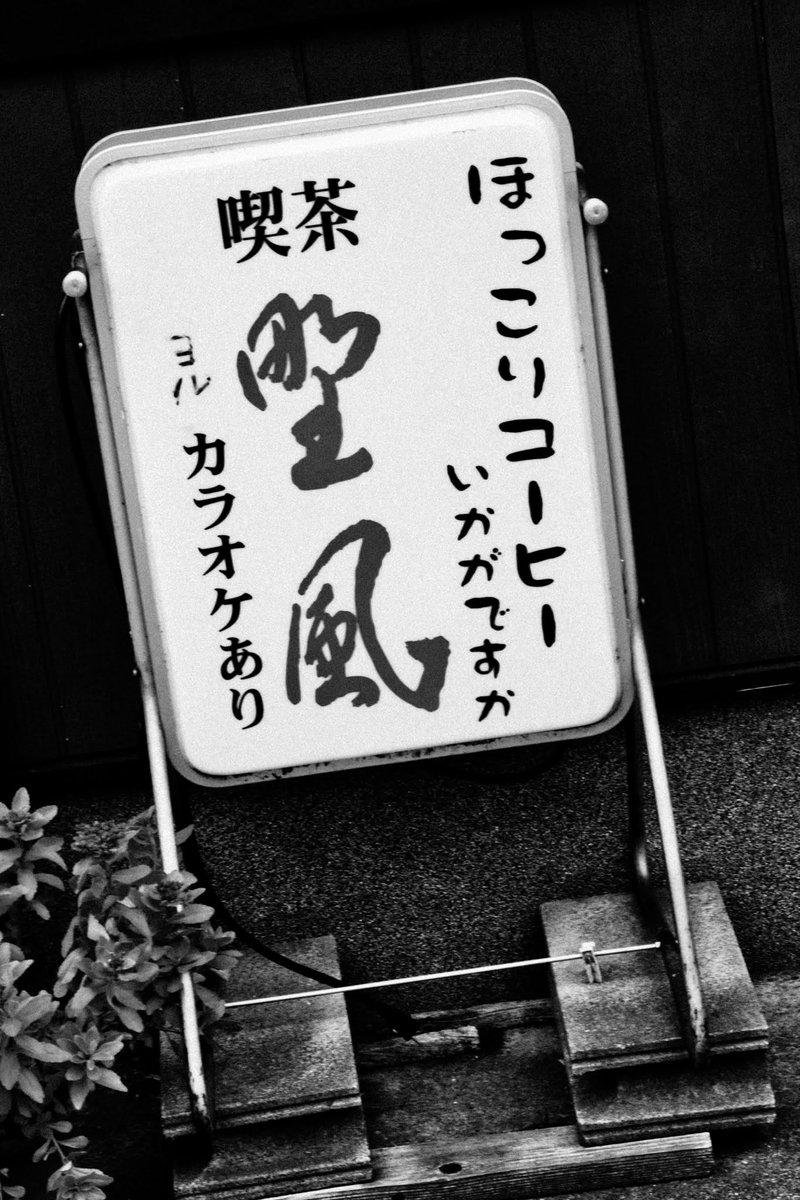 ほっこりコーヒー
いかがですか
喫茶
野風
ヨル
カラオケあり